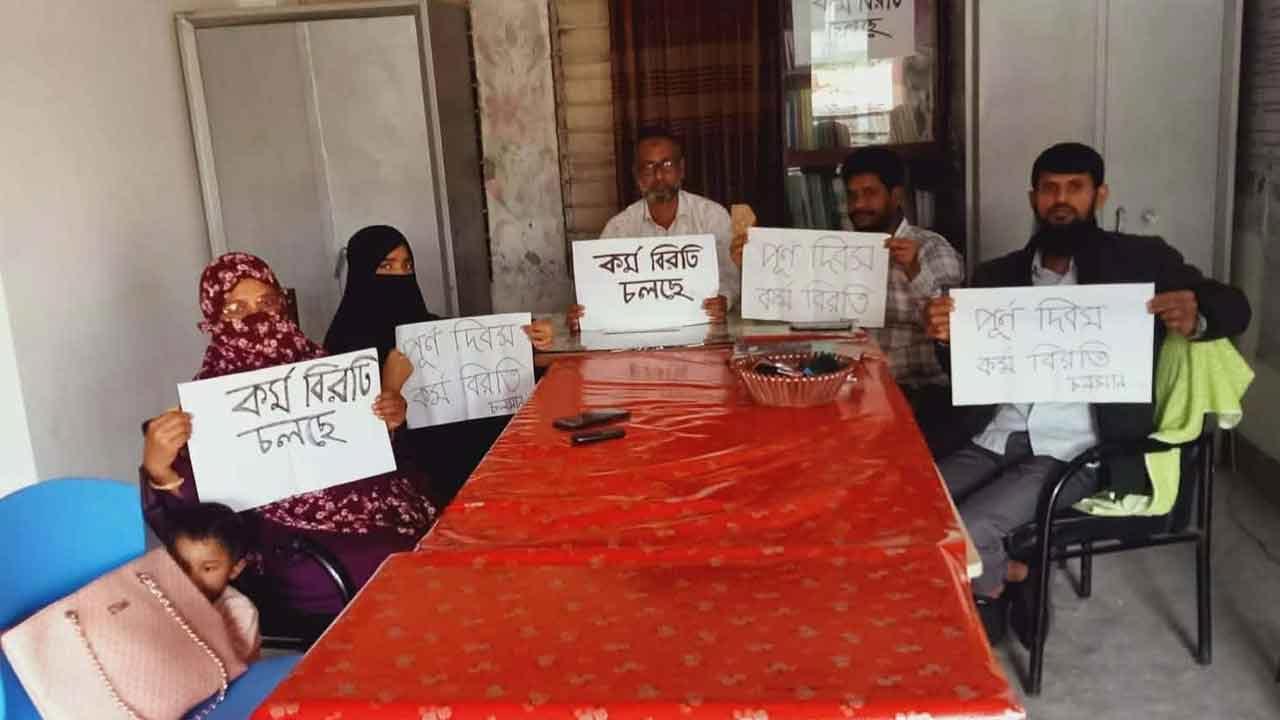 কর্ম বিরতি
চলছে
কর্ম বিরতি
চলছে
পূর্ণ দিবস
কর্ম বিরতি
চলমান
কর্ম বিরতি
চলছে
পূর্ণ দিবস
কর্ম বিরতি
পূর্ণ দিবস
কর্ম বিরতি
চলমান